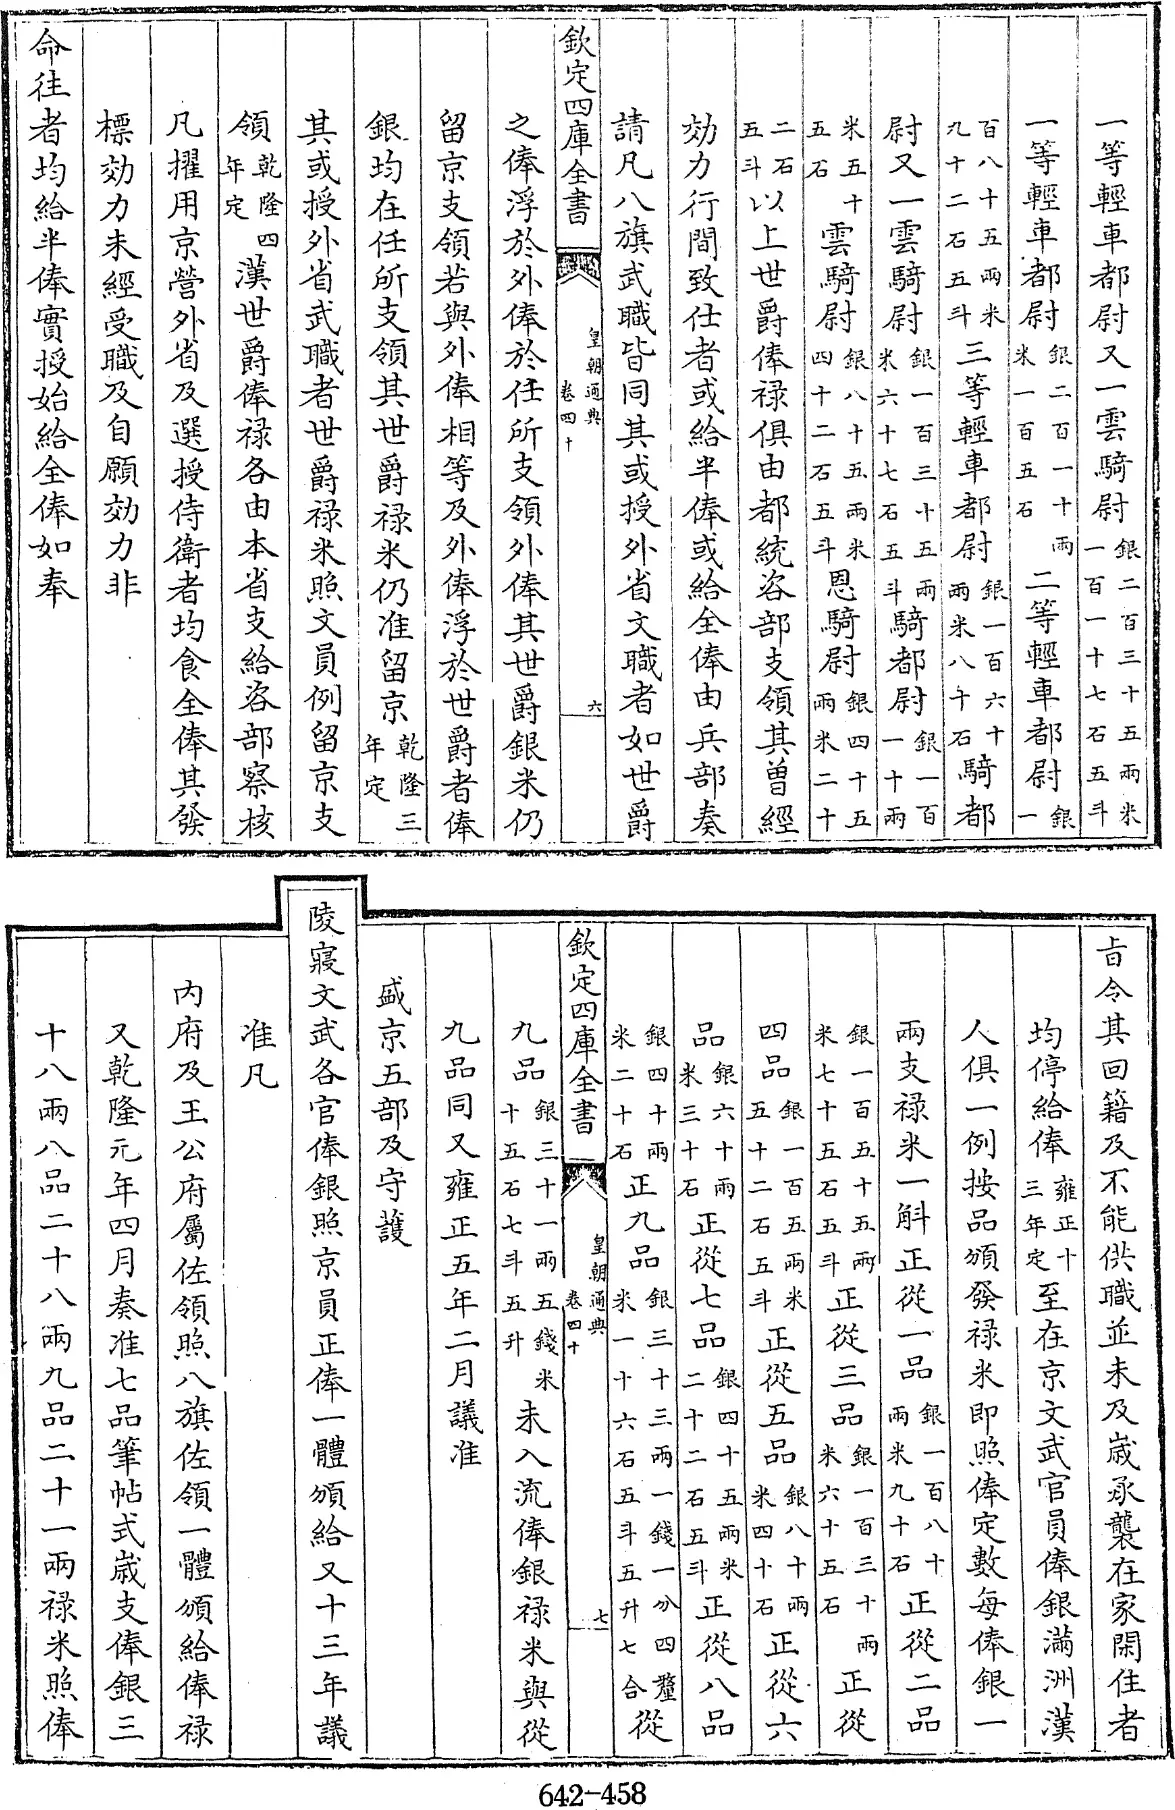 一等輕車都尉又一雲騎尉銀二百三十五兩米一百一十七石五斗
一等輕車都尉銀二百一十兩米一百五石二等輕車都尉銀一
百八十五兩米九十二石五斗三等輕車都尉銀一百六十兩米八十石騎都
尉又一雲騎尉銀一百三十五兩米六十七石五斗騎都尉銀一百一十兩
米五十五石雲騎尉銀八十五兩米四十二石五斗恩騎尉銀四十五兩米二十
二石五斗以上世爵俸禄俱由都統咨部支領其曾經
効力行間致仕者或給半俸或給全俸由兵部奏
請凡八旗武職皆同其或授外省文職者如世爵
欽定四庫全書 皇朝通典 卷四十 六
之俸浮於外俸於任所支領外俸其世爵銀米仍
留京支領若與外俸相等及外俸浮於世爵者俸
銀均在任所支領其世爵禄米仍准留京乾隆三年定
其或授外省武職者世爵禄米照文員例留京支
領乾隆四年定漢世爵俸禄各由本省支給咨部察核
凡擢用京營外省及選授侍衛者均食全俸其發
標効力未經受職及自願効力非
命往者均給半俸實授始給全俸如奉
旨令其回籍及不能供職並未及歲承襲在家閑住者
均停給俸雍正十三年定至在京文武官員俸銀滿洲漢
人俱一例按品頒發禄米即照俸定數每俸銀一
兩支禄米一斛正從一品銀一百八十兩米九十石正從二品
銀一百五十五兩米七十五石五斗正從三品銀一百三十兩米六十五石正從
四品銀一百五兩米五十二石五斗正從五品銀八十兩米四十石正從六
品銀六十兩米三十石正從七品銀四十五兩米二十二石五斗正從八品
銀四十兩米二十石正九品銀三十三兩一錢一分四釐米一十六石五斗五升七合從
欽定四庫全書 皇朝通典 卷四十 七
九品銀三十一兩五錢米十五石七斗五升未入流俸銀禄米與從
九品同又雍正五年二月議准
盛京五部及守護
陵寢文武各官俸銀照京員正俸一體頒給又十三年議
准凡
内府及王公府屬佐領照八旗佐領一體頒給俸禄
又乾隆元年四月奏准七品筆帖式歲支俸銀三
十八兩八品二十八兩九品二十一兩禄米照俸
642-458